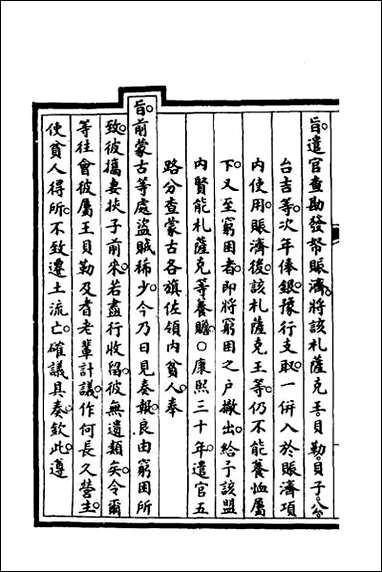 旨遣官查勘發帑賑濟將該札薩克王貝勒貝子公
台吉等次年俸銀豫行支取一併入於賑濟項
內使用賑濟後該札薩克王等仍不能養恤屬
下又至窮困者即將窮困之戶撤出給予該盟
內賢能札薩克等養贍○康熙三十年遣官五
路分查蒙古各旗佐領內貧人奉
旨前蒙古等處盜賊稀少今乃日見奏報良由窮困所
致彼攜妻挾子前來若盡行收留彼無遺類矣令爾
等往會彼屬王貝勒及耆老輩計議作何長久營生
使貧人得所不致遷土流亡確議具奏欽此遵